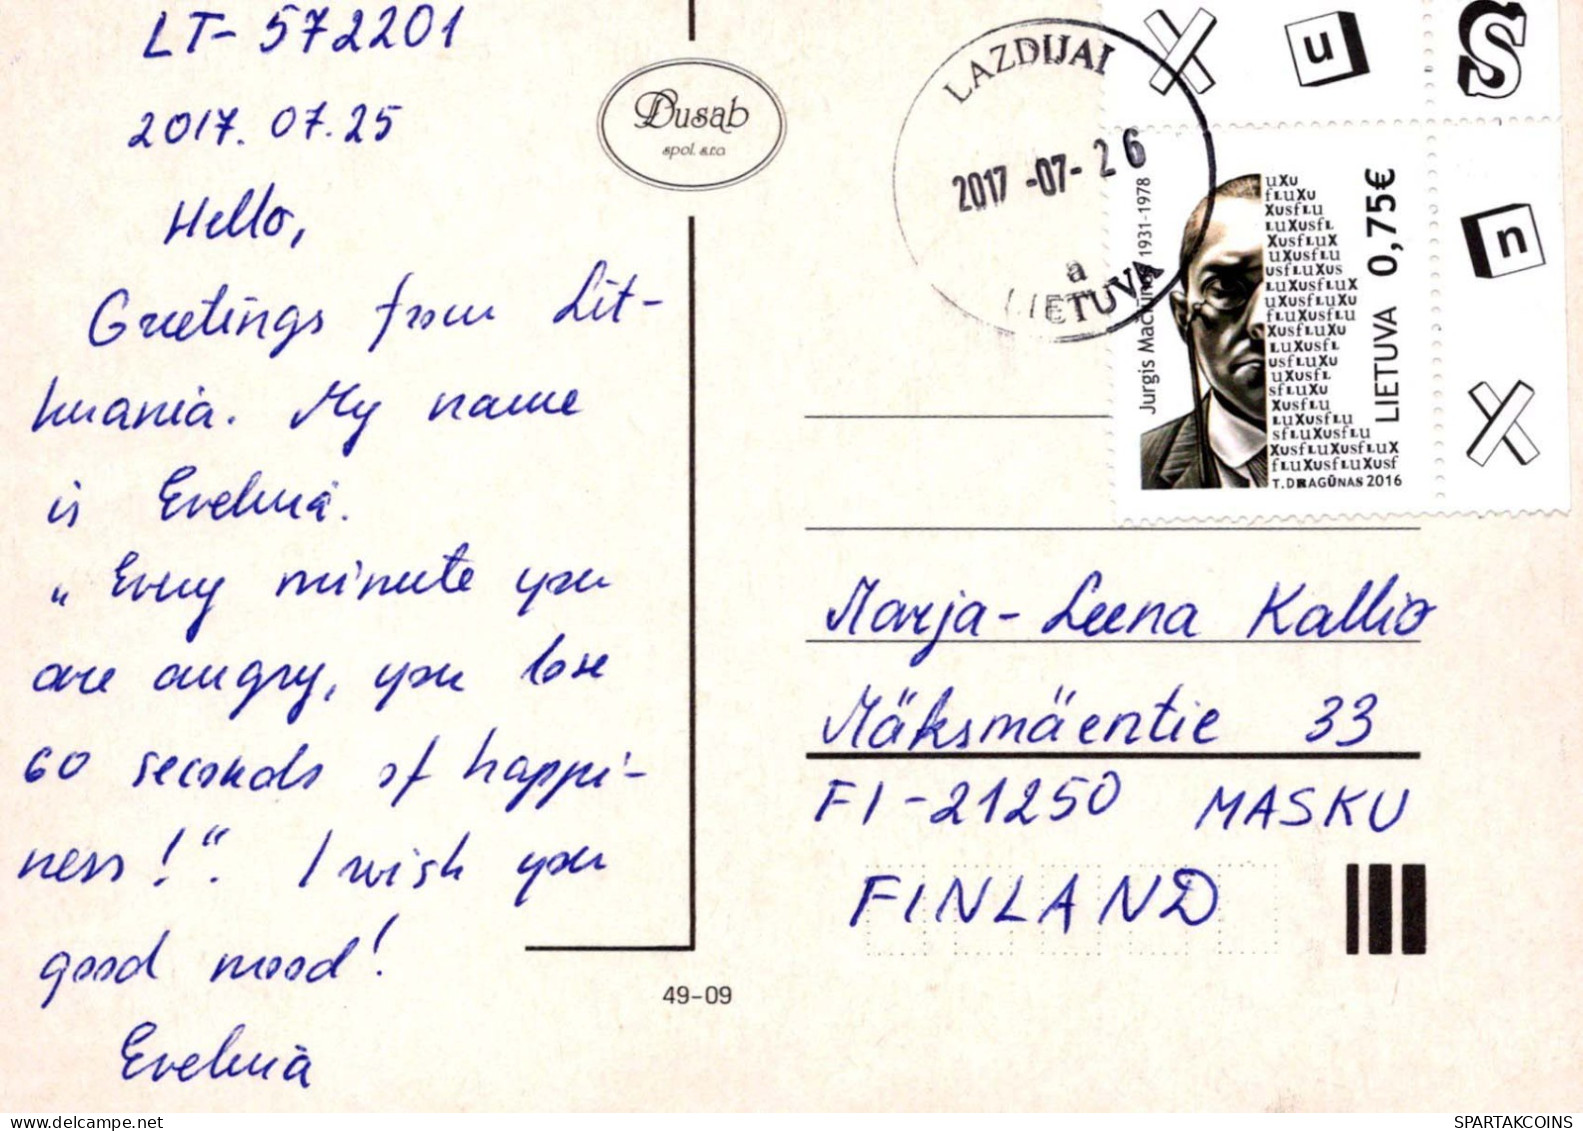 LT- 572201
2017. 07. 25
Hello,
Greetings from Lit-
huania. My name
is Evelina.
„Every minute you
are angry, you lose
60 seconds of happi-
ness!“. I wish you
good mood!
Evelina
Dusab
spol. s.r.o.
49-09
LAZDIJAI
2017 -07- 26
a
LIETUVA
X u S
n
X
Jurgis Mačiūnas 1931-1978
LIETUVA 0,75€
uXu
fLuXu
XusfLu
LuXusfL
XusfLuX
uXusfLu
usfLuXus
LuXusfLuX
uXusfLuXu
fLuXusfLu
XusfLuXu
LuXusfL
usfLuXu
uXusfL
sfLuXu
XusfLu
LuXusfLu
sfLuXusfLu
XusfLuXusfLuX
fLuXusfLuXusf
T.DRAGŪNAS 2016
Marja-Leena Kallio
Mäksmäentie 33
FI-21250 MASKU
FINLAND
SPARTAKCOINS